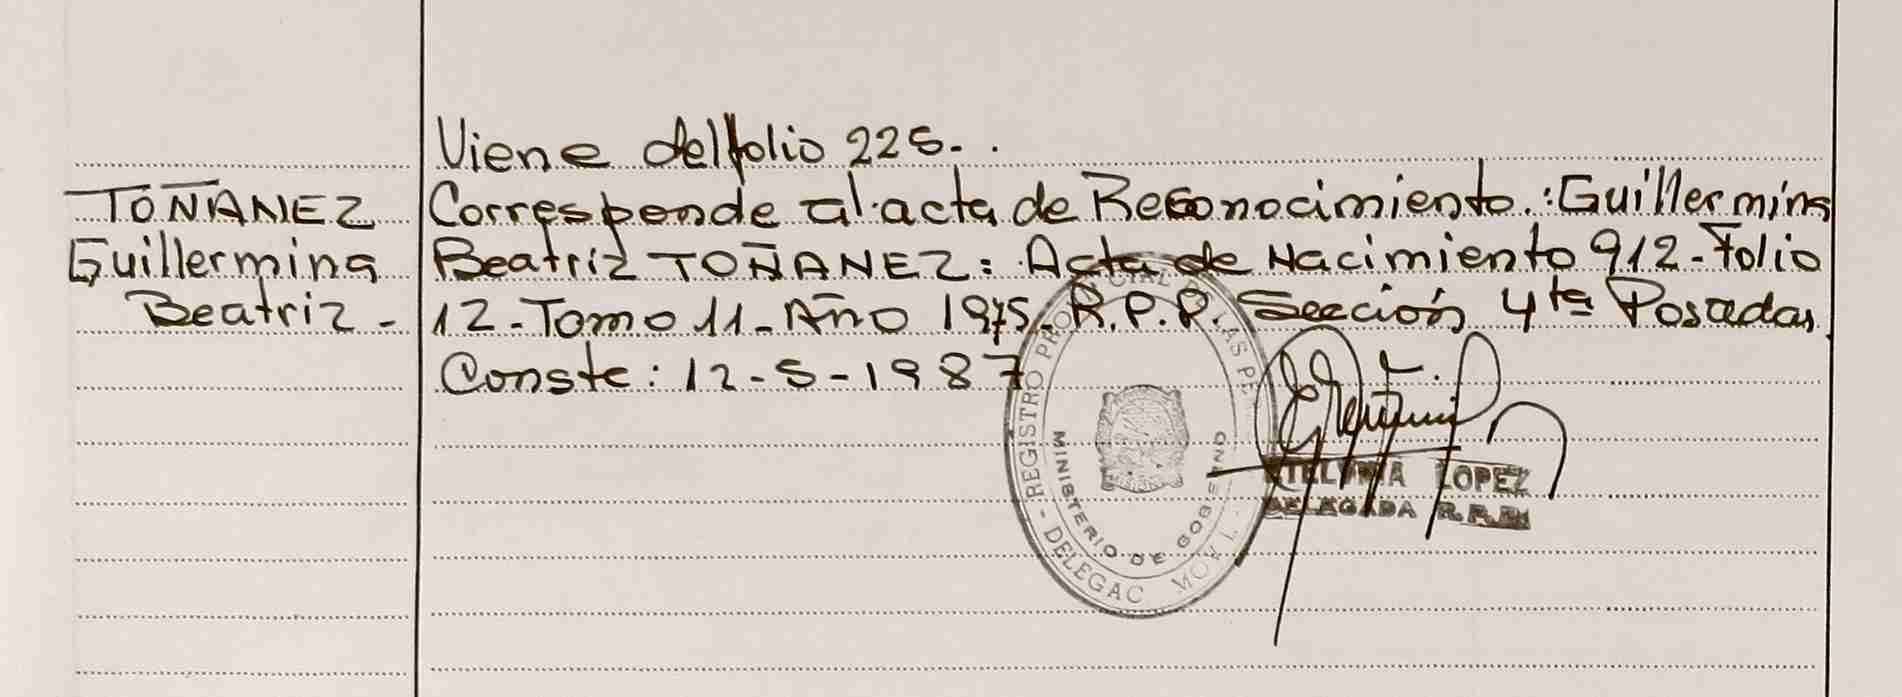 Viene del folio 225.
TOÑANEZ
Guillermina
Beatriz -
Corresponde al acta de Reconocimiento.: Guillermina
Beatriz TOÑANEZ: Acta de Nacimiento 912 - Folio
12 - Tomo 11 - Año 1975 - R.P.P. Sección 4ta Posadas.
Conste: 12-5-1987
REGISTRO PROVINCIAL DE LAS PE
DELEGAC MOVIL
MINISTERIO DE GOBIERNO
LOPEZ
DELEGADA